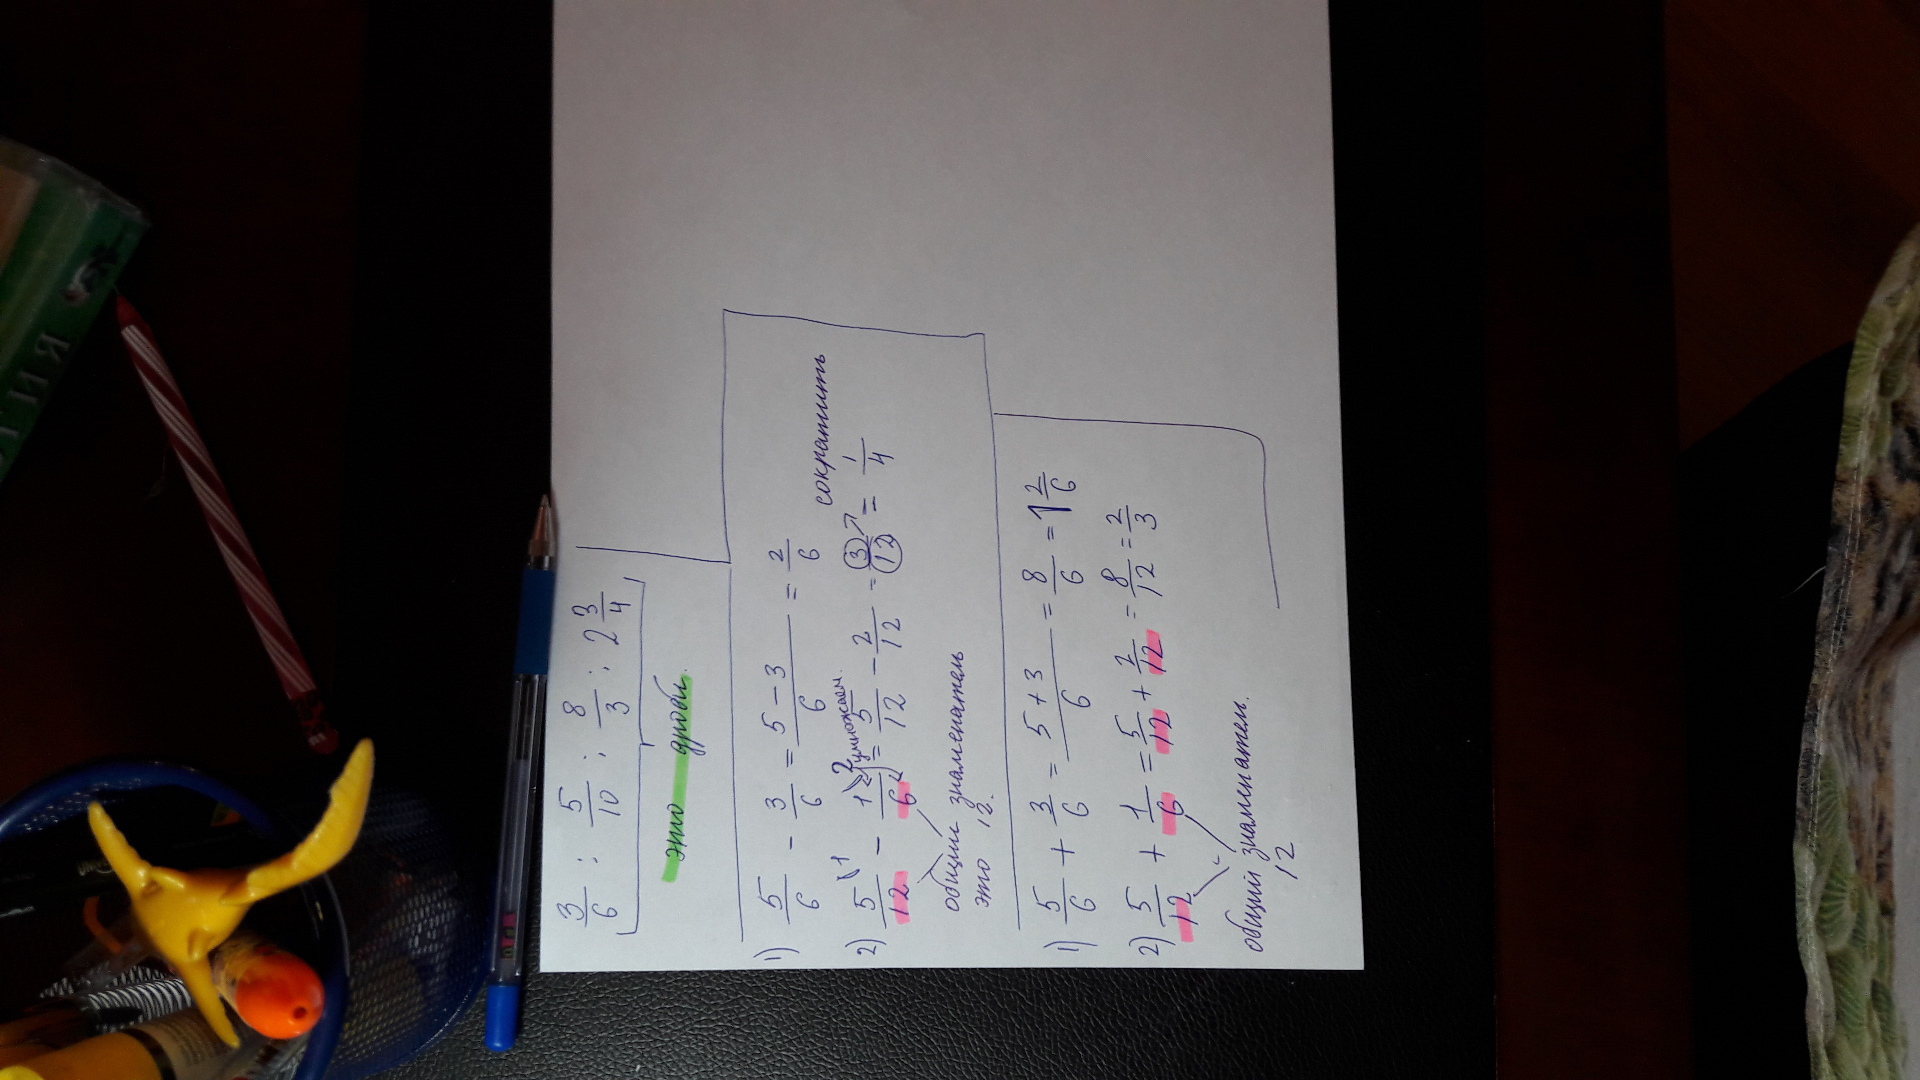 3/6 ; 5/10 ; 8/3 ; 2 3/4
это дроби.
1) 5/6 - 3/6 = (5 - 3)/6 = 2/6
сократить
умножаем.
2) 5/12 \1 - 1/6 \2 = 5/12 - 2/12 = 3/12 = 1/4
общий знаменатель
это 12.
1) 5/6 + 3/6 = (5 + 3)/6 = 8/6 = 1 2/6
2) 5/12 + 1/6 = 5/12 + 2/12 = 8/12 = 2/3
общий знаменатель.
12